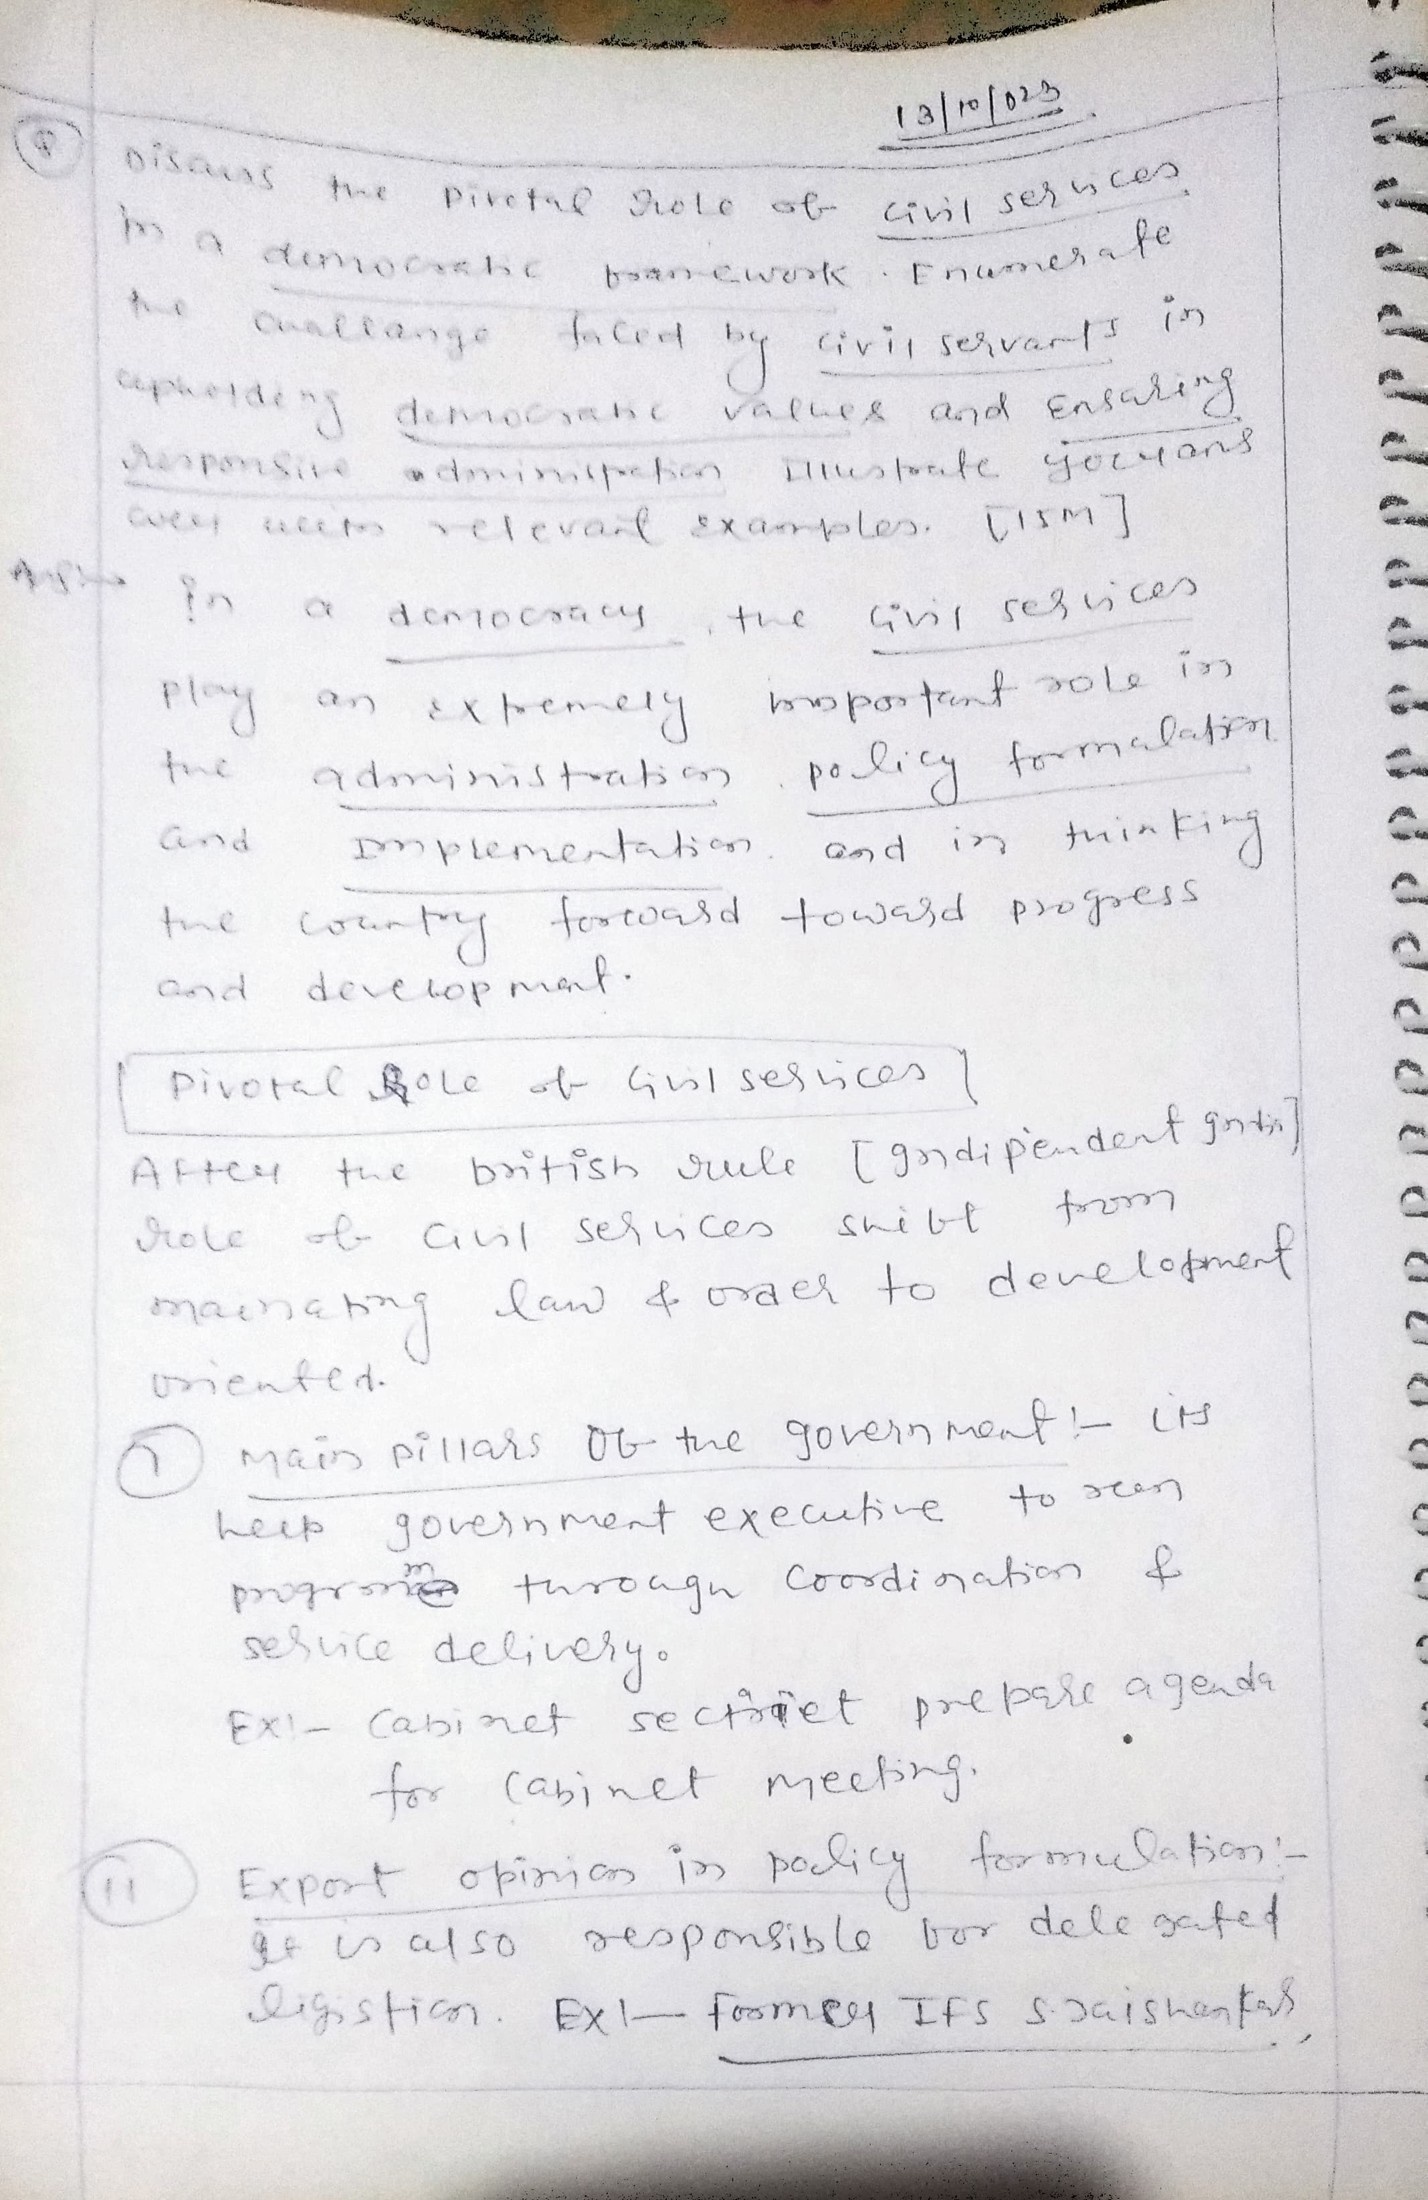 13/10/023
Q Discuss the pivotal role of civil services
in a democratic framework. Enumerate
the challange faced by civil servants in
upholding democratic values and Ensuring
responsive administration Illustrate your ans
with relevant examples. [15M]
Ans:- In a democracy, the civil services
play an extremely important role in
the administration, policy formulation
and Implementation. and in thinking
the country forward toward progress
and development.
Pivotal Role of Civil services
After the british rule [Indipendent India]
role of civil services shift from
law & order to development
oriented.
I Main pillars of the government :- its
help government executive to run
programm through coordination &
service delivery.
Ex:- Cabinet prepare agenda
for cabinet meeting.
II Export opinion in policy formulation :-
It is also responsible for delegated
ligistion. Ex:- Former IFS S. Jaishankar,